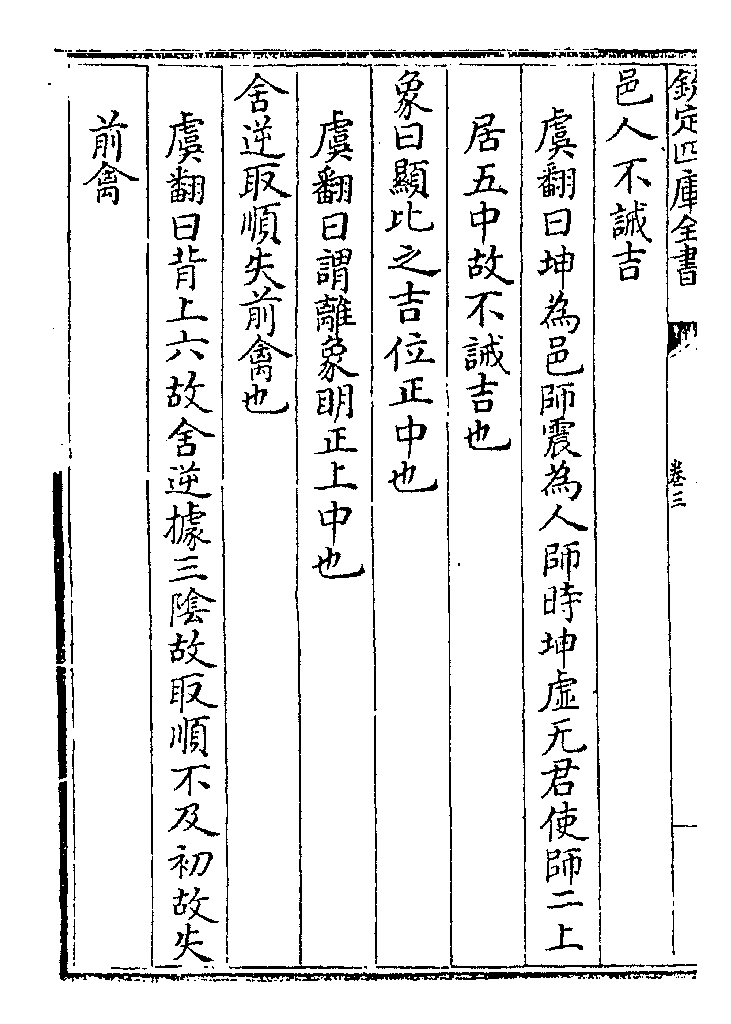 欽定四庫全書
卷三
邑人不誡吉
虞翻曰坤為邑師震為人師時坤虛无君使師二上
居五中故不誡吉也
象曰顯比之吉位正中也
虞翻曰謂離象明正上中也
舍逆取順失前禽也
虞翻曰背上六故舍逆據三陰故取順不及初故失
前禽